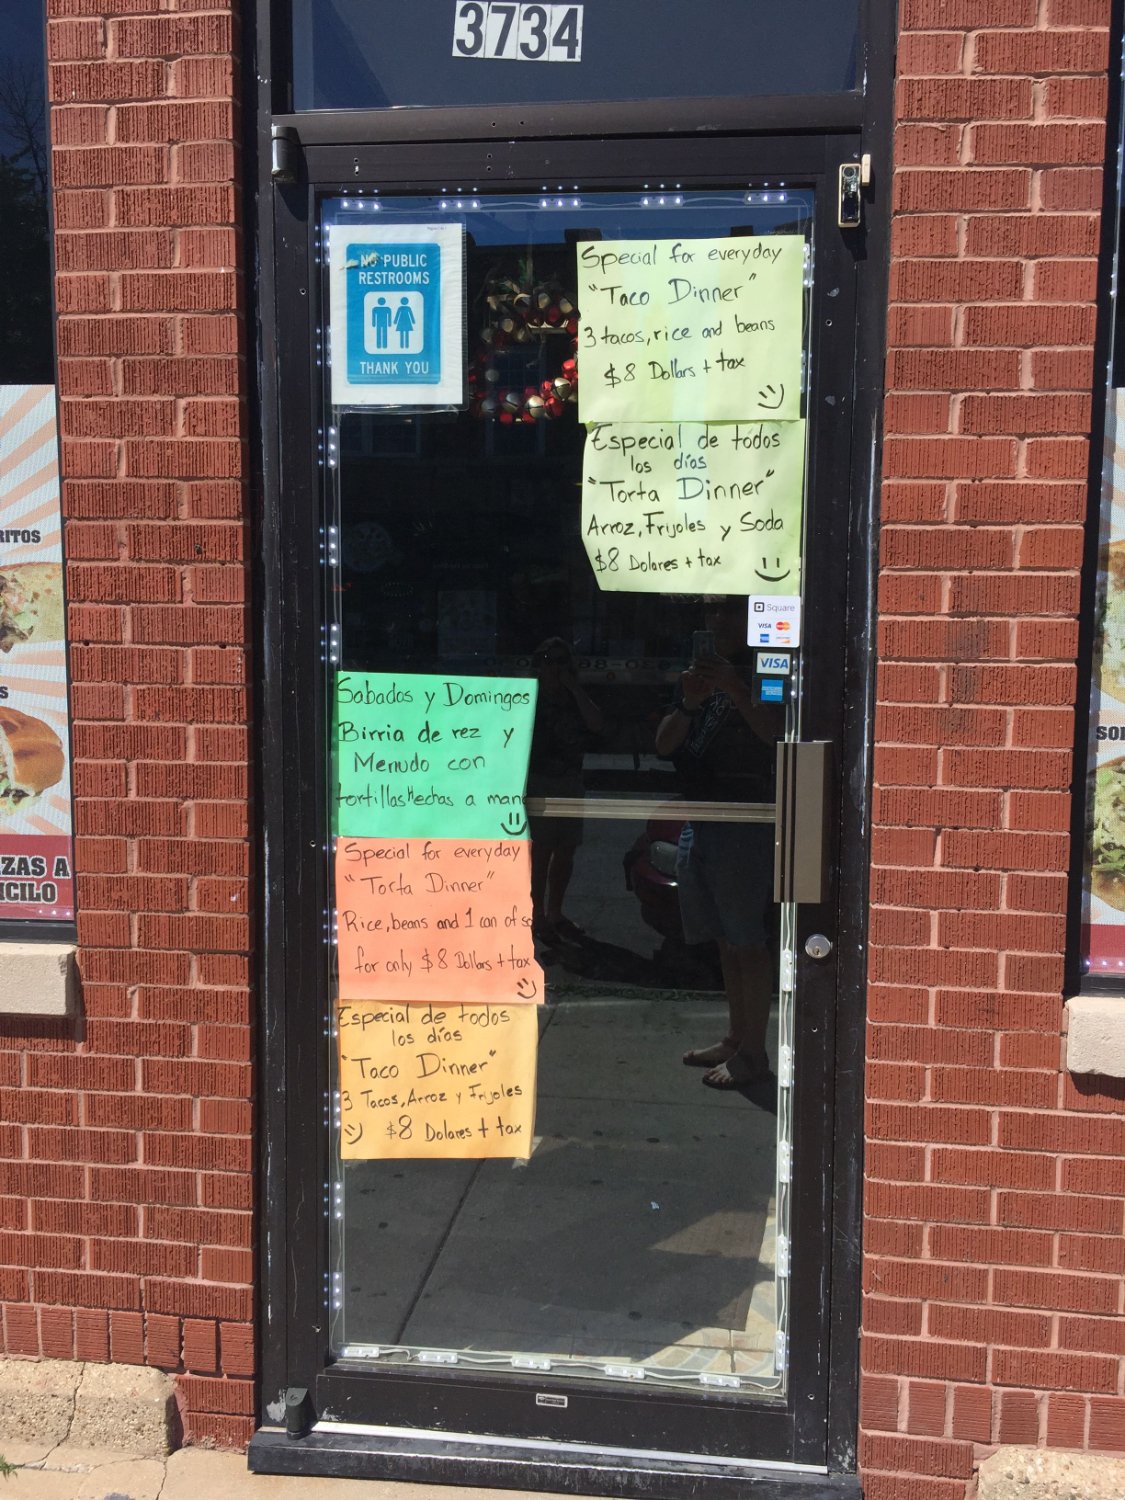 3734
NO PUBLIC
RESTROOMS
THANK YOU
Special for everyday
"Taco Dinner"
3 tacos, rice and beans
$8 Dollars + tax
Especial de todos
los días
"Torta Dinner"
Arroz, Frijoles y Soda
$8 Dolares + tax
Square
VISA
VISA
Sabados y Domingos
Birria de rez y
Menudo con
tortillas Hechas a man
Special for everyday
"Torta Dinner"
Rice, beans and 1 can of so
for only $8 Dollars + tax
Especial de todos
los días
"Taco Dinner"
3 Tacos, Arroz y Frijoles
$8 Dolares + tax
RITOS
S
ZAS A
ICILO
SO